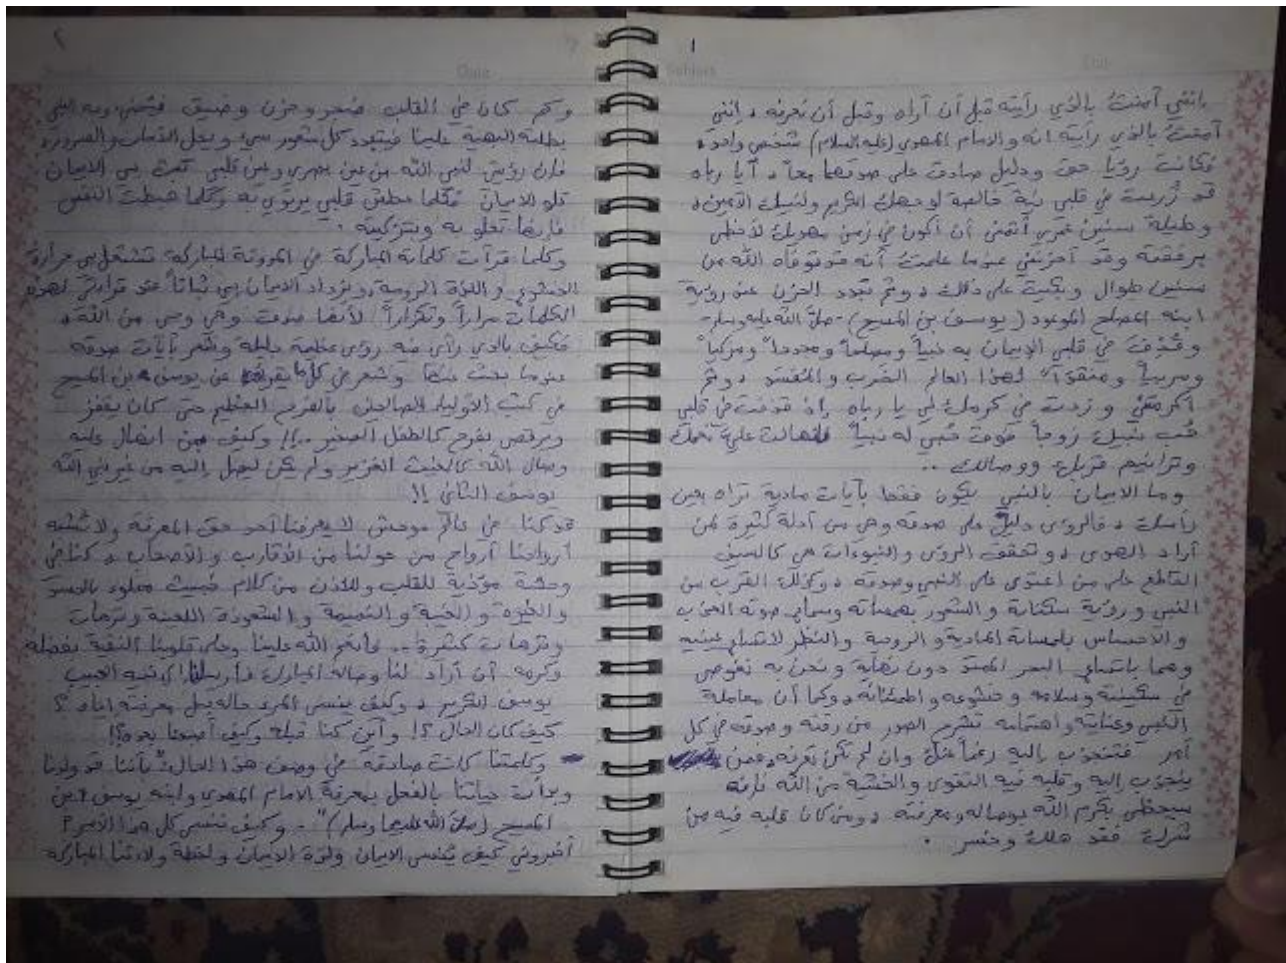 1
إنني آمنتُ بالذي رأيته قبل أن أراه وقبل أن نعرفه، إنني
آمنتُ بالذي رأيته انه والامام المهدي (عليه السلام) شخص واحد،
فكانت رؤيا حق ودليل صادق على صدقهما معاً، أيا رباه
قد زُرعت في قلبي نية خالصة لوجهك الكريم ولنبيك الأمين،
وطيلة سنين عمري أتمنى أن أكون في زمن مهديك لأحظى
برفقته وقد أحزنني عندما علمتُ أنه قد توفاه الله من
سنين طوال وبكيت على ذلك، وثم تبدد الحزن عند رؤية
ابنه المصلح الموعود (يوسف بن المسيح) -صلى الله عليه وسلم-
وقُذفت في قلبي الايمان به نبياً ومصلحاً ومجدداً ومزكياً
ومربياً ومنقذاً لهذا العالم الخَرِب والمُفسَد، وثم
أكرمتني وزدت في كرمك لي يا رباه إذ قذفت في قلبي
حُب نبيك زوجاً فوق حُبي له نبياً فانهالت عليَّ نعمك
وترانيم قربك ووصالك ..
وما الايمان بالنبي يكون فقط بآيات مادية تراه بعين
رأسك، فالرؤى دليلٌ على صدقه وهي من أدلة كثيرة لمن
أراد الهدى، وتحقق الرؤى والنبوءات هي كالسيف
القاطع على من اعتدى على النبي وصدقه، وكذلك القرب من
النبي ورؤية سكناته والشعور بهمساته وسماع صوته العذب
والاحساس بلمساته المادية والروحية والنظر لاتساع عينيه
وهما باتساع البحر الممتد دون نهاية ونحن به نغوص
في سكينته وسلامه وخشوعه واطمئنانه، وكما أن معاملة
النبي وعنايته واهتمامه تشرح الصدر من رقته وصدقه في كل
أمر فتنجذب إليه رغماً عنك وان لم تكن تعرفه، فمن
ينجذب إليه وقلبه فيه التقوى والخشية من الله فإنه
سيحظى بكرم الله بوصاله ومعرفته، ومن كان قلبه فيه من
شرك فقد هلك وخسر .
٢
وكم كان في القلب ضجر وحزن وضيق فيُحني ربه النبي
بطلته البهية علينا فيتبدد كل شعور سيء ويحل الأمان والسرور،
فإن رؤيتي لنبي الله من عين بصري ومن قلبي تمت بي الايمان
تلو الايمان فكلما عطش قلبي يرتوي به وكلما هبطت النفس
فإنها تعلو به وبتزكيته .
وكلما قرأت كلماته المباركة في المدونة المباركة تشتعل بي حرارة
الخشوع واللذة الروحية ويزداد الايمان بي ثباتاً عند قراءتي لهذه
الكلمات مراراً وتكراراً لأنها صدق وهي وحي من الله،
فكيف بالذي رأى منه رؤى عظيمة جليلة وشعر بآيات صدقه
عندما بحث عنها وشعر في كل ما يقرأه عن يوسف بن المسيح
في كتب الأولياء الصالحين بالفرح العظيم حتى كان يقفز
ويرقص بفرح كالطفل الصغير ..!! وكيف بمن انهال عليه
وصال الله كالغيث الغزير ولم يكن ليصل إليه من غير نبي الله
يوسف الثاني !!
قد كنا في عالمٍ موحش لا يعرفنا أحد حق المعرفة ولا تُشبه
أرواحنا أرواح من حولنا من الأقارب والأصحاب، كنا في
وحشة مؤذية للقلب وللأذن من كلام خبيث مملوء بالحسد
والغيرة والغيبة والنميمة والشعوذة اللعينة وترهات
وترهات كثيرة .. فأنعم الله علينا وعلى قلوبنا النقية بفضله
وكرمه أن أراد لنا وصاله المبارك فأرسل لنا نبيه الحبيب
يوسف الكريم، وكيف ينسى المرء حاله قبل معرفته اياه ؟
كيف كان الحال ؟! وأين كنا قبله وكيف أصبحنا بعده ؟!
وكلمتنا كانت صادقة في وصف هذا الحال: "بأننا قد ولدنا
وبدأت حياتنا بالفعل بمعرفة الامام المهدي وابنه يوسف بن
المسيح (صلى الله عليهما وسلم)" .. وكيف ننسى كل هذا الأمر ؟
أخبروني كيف يُنسى الايمان ولذة الايمان ولحظة ولادتنا المباركة